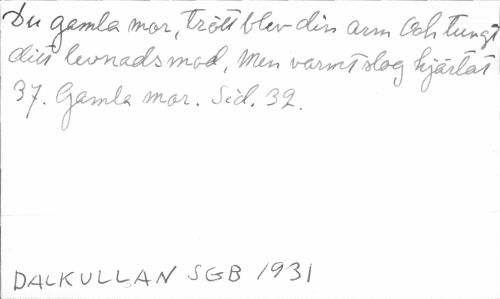 Du gamla mor, trött blev din arm Och tungt
ditt levnadsmod, Men varmt slog hjärtat
37. Gamla mor. Sid. 32.
DALKULLAN SGB 1931